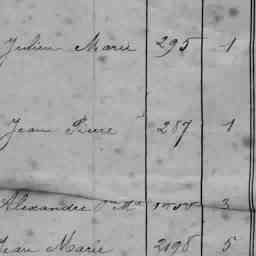 Julien Marie 295 1
Jean Pierre 287 1
Alexandre 3
Jean Marie 2198 5